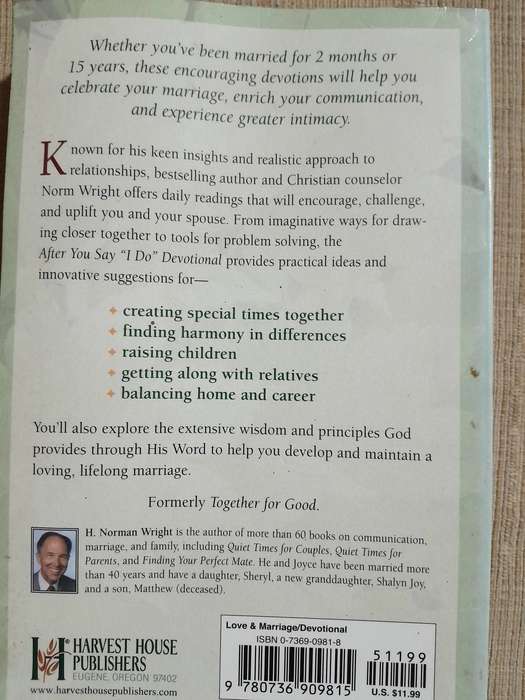 Whether you've been married for 2 months or
15 years, these encouraging devotions will help you
celebrate your marriage, enrich your communication,
and experience greater intimacy.
Known for his keen insights and realistic approach to
relationships, bestselling author and Christian counselor
Norm Wright offers daily readings that will encourage, challenge,
and uplift you and your spouse. From imaginative ways for draw-
ing closer together to tools for problem solving, the
After You Say "I Do" Devotional provides practical ideas and
innovative suggestions for—
✦ creating special times together
✦ finding harmony in differences
✦ raising children
✦ getting along with relatives
✦ balancing home and career
You'll also explore the extensive wisdom and principles God
provides through His Word to help you develop and maintain a
loving, lifelong marriage.
Formerly Together for Good.
H. Norman Wright is the author of more than 60 books on communication,
marriage, and family, including Quiet Times for Couples, Quiet Times for
Parents, and Finding Your Perfect Mate. He and Joyce have been married more
than 40 years and have a daughter, Sheryl, a new granddaughter, Shalyn Joy,
and a son, Matthew (deceased).
HARVEST HOUSE
PUBLISHERS
EUGENE, OREGON 97402
www.harvesthousepublishers.com
Love & Marriage/Devotional
ISBN 0-7369-0981-8
51199
9 780736 909815
U.S. $11.99